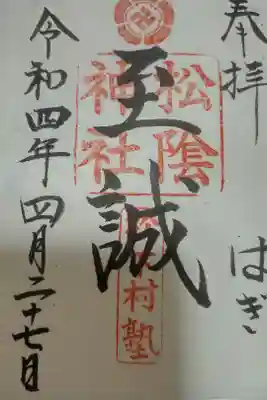 奉拝
はぎ
至誠
松陰
神社
松下村塾
令和四年四月二十七日